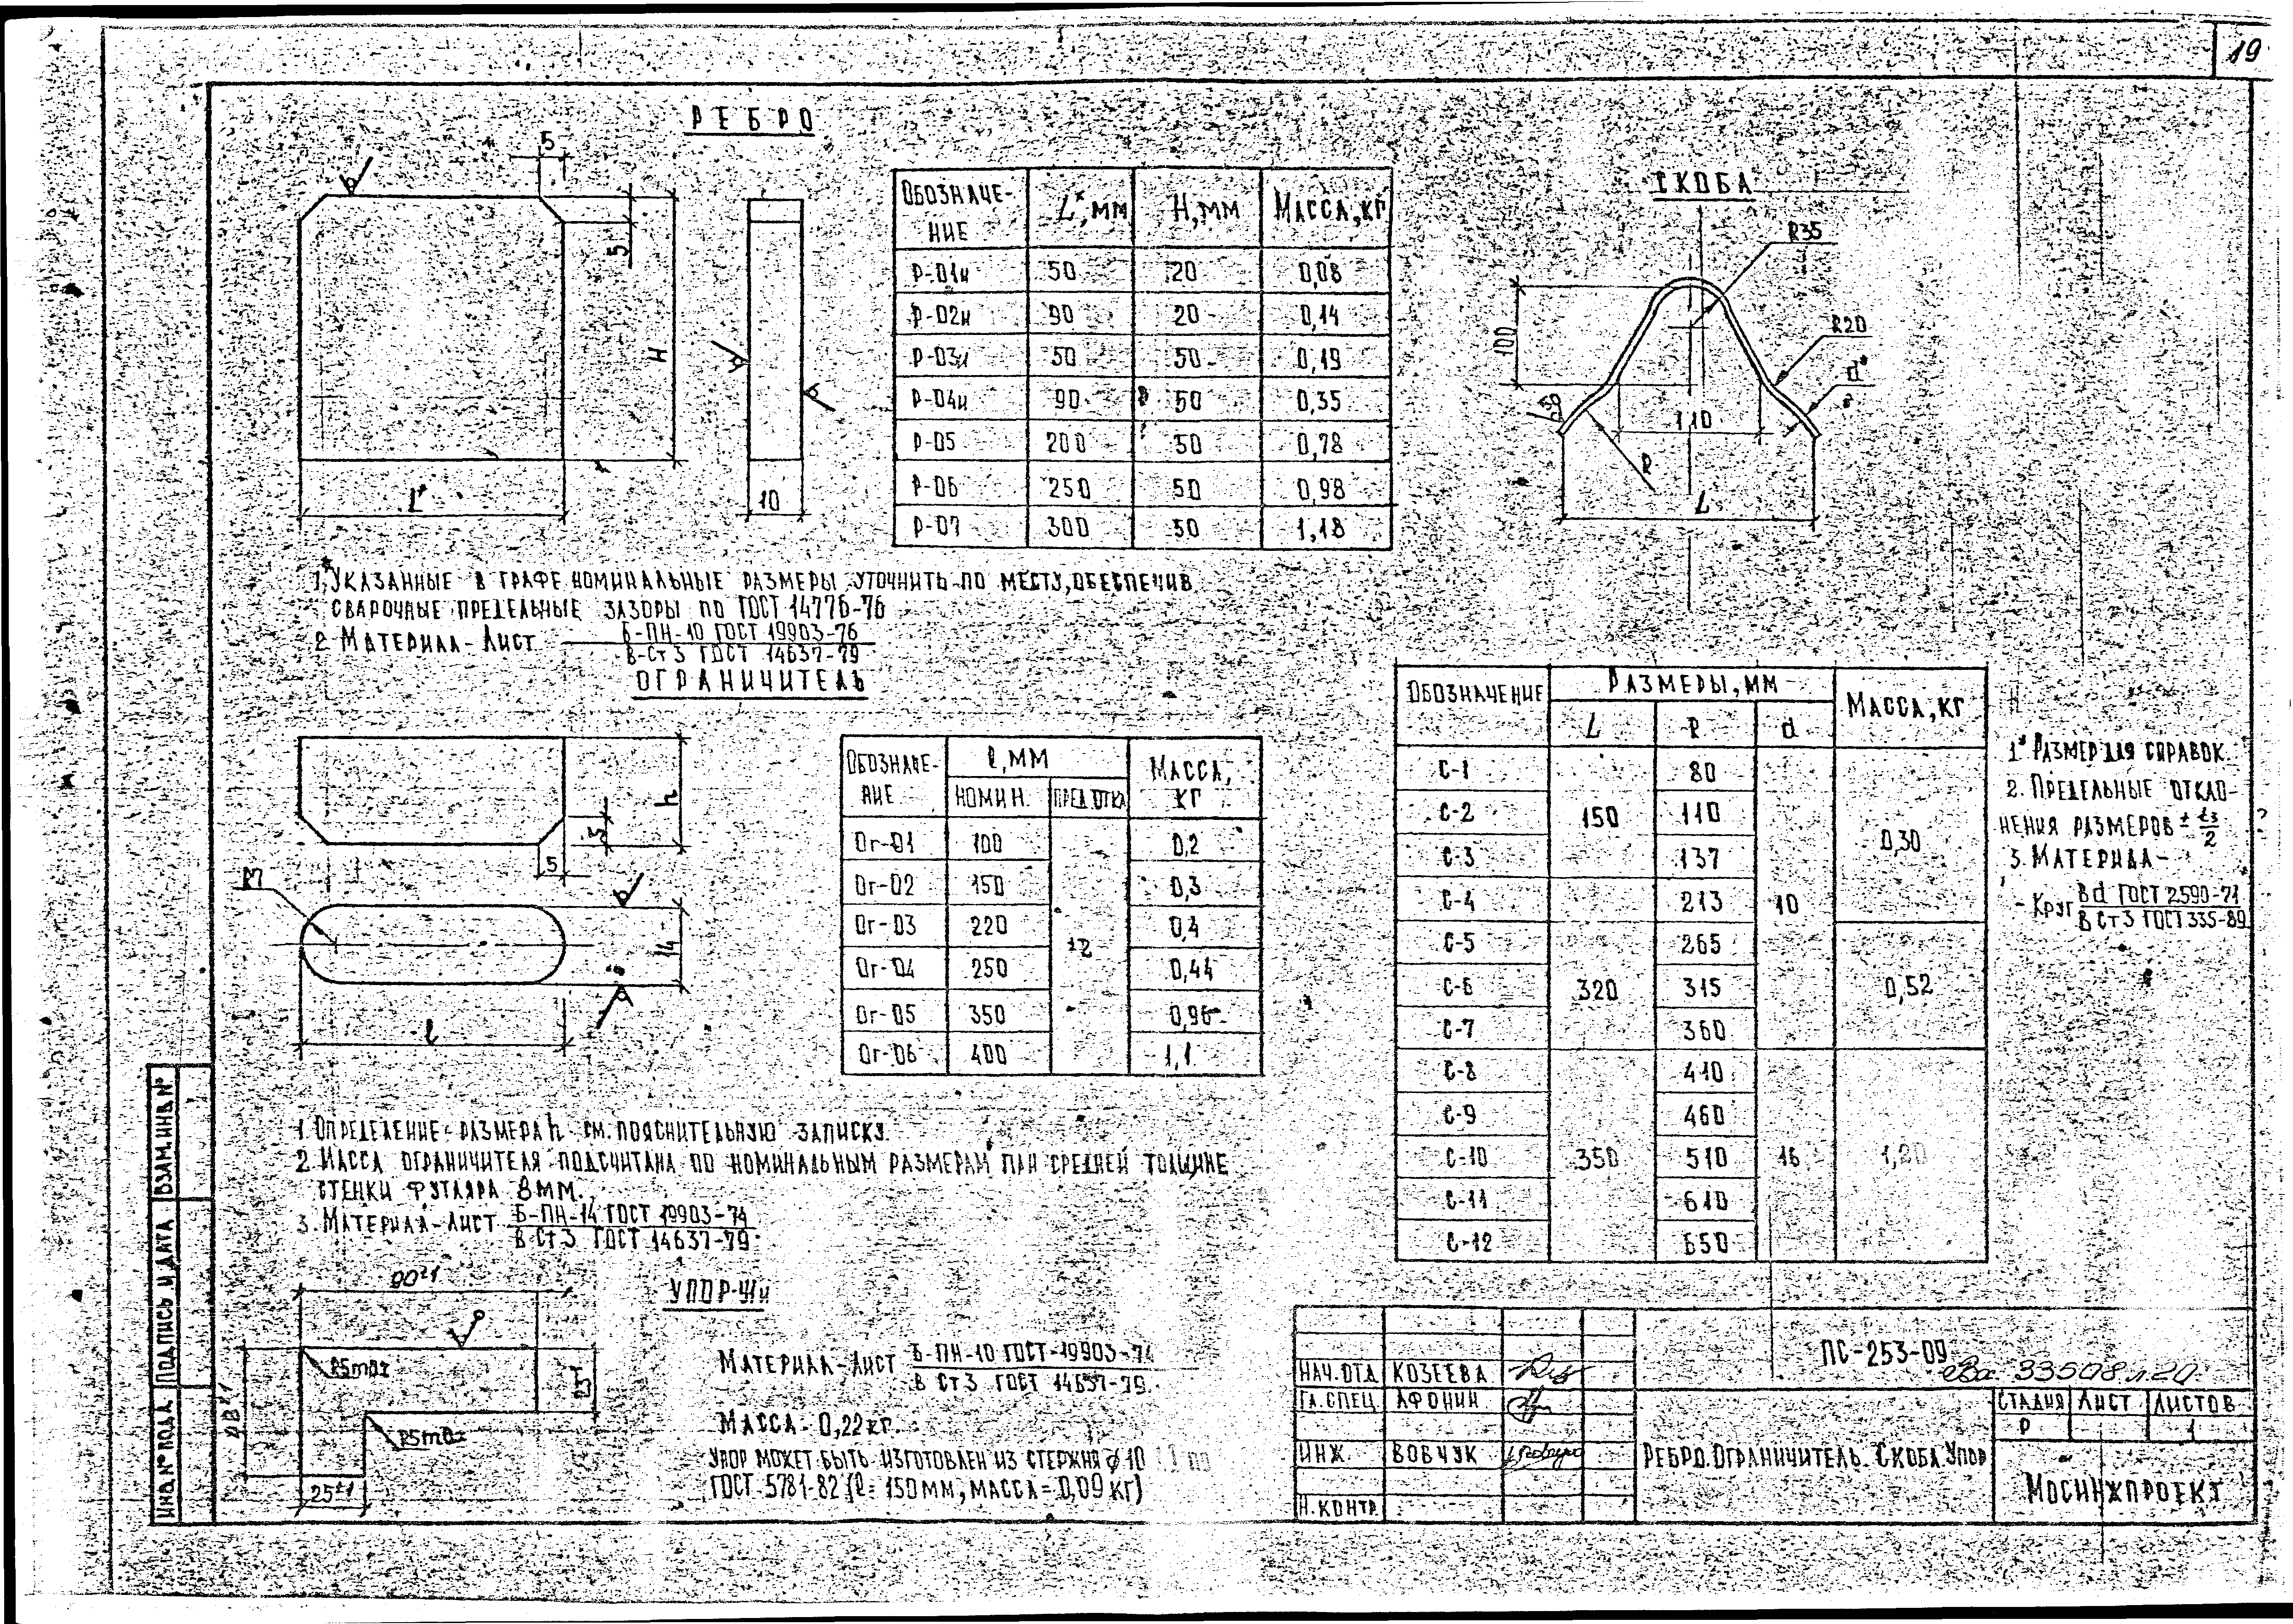 19
РЕБРО
5
5
H
L*
10
Обозначе-
ние
L*, мм
H, мм
Масса, кг
Р-01и 50 20 0,08
Р-02и 90 20 0,14
Р-03и 50 50 0,19
Р-04и 90 50 0,35
Р-05 200 50 0,78
Р-06 250 50 0,98
Р-07 300 50 1,18
1.* Указанные в графе номинальные размеры уточнить по месту, обеспечив
сварочные предельные зазоры по ГОСТ 14776-76
2. Материал - Лист Б-ПН-10 ГОСТ 19903-76
В-Ст3 ГОСТ 14637-79
СКОБА
R35
100
R20
d*
50
110
R
L
Обозначение
Размеры, мм
Масса, кг
L R d
С-1 150 80 10 0,30
С-2 110
С-3 137
С-4 320 213
С-5 265 0,52
С-6 315
С-7 360
С-8 350 410 16 1,20
С-9 460
С-10 510
С-11 610
С-12 650
1* Размер для справок.
2. Предельные откло-
нения размеров ± t3/2
3. Материал -
- Круг Вd ГОСТ 2590-71
В Ст3 ГОСТ 335-89
ОГРАНИЧИТЕЛЬ
h
5
5
R7
14
l
Обозначе-
ние
l, мм
номин. пред.откл
Масса,
кг
Ог-01 100 ±2 0,2
Ог-02 150 0,3
Ог-03 220 0,4
Ог-04 250 0,44
Ог-05 350 0,96
Ог-06 400 1,1
1. Определение размера h см. пояснительную записку.
2. Масса ограничителя подсчитана по номинальным размерам при средней толщине
стенки футляра 8мм.
3. Материал - Лист Б-ПН-14 ГОСТ 19903-74
В Ст3 ГОСТ 14637-79
УПОР-У1и
90±1
R5max
R5max
25±1
Материал - Лист Б-ПН-10 ГОСТ 19903-74
В Ст3 ГОСТ 14637-79
Масса - 0,22 кг.
Упор может быть изготовлен из стержня ф10 по
ГОСТ 5781-82 (l = 150мм, масса = 0,09 кг)
Взам.инв.№
Подпись и дата
Инв.№ подл.
Нач.отд Козеева
Гл.спец Афонин
Инж. Вовчук
Н.контр.
ПС-253-09
33508 л.20
Ребро. Ограничитель. Скоба. Упор
Стадия Лист Листов
Р 1
Мосинжпроект